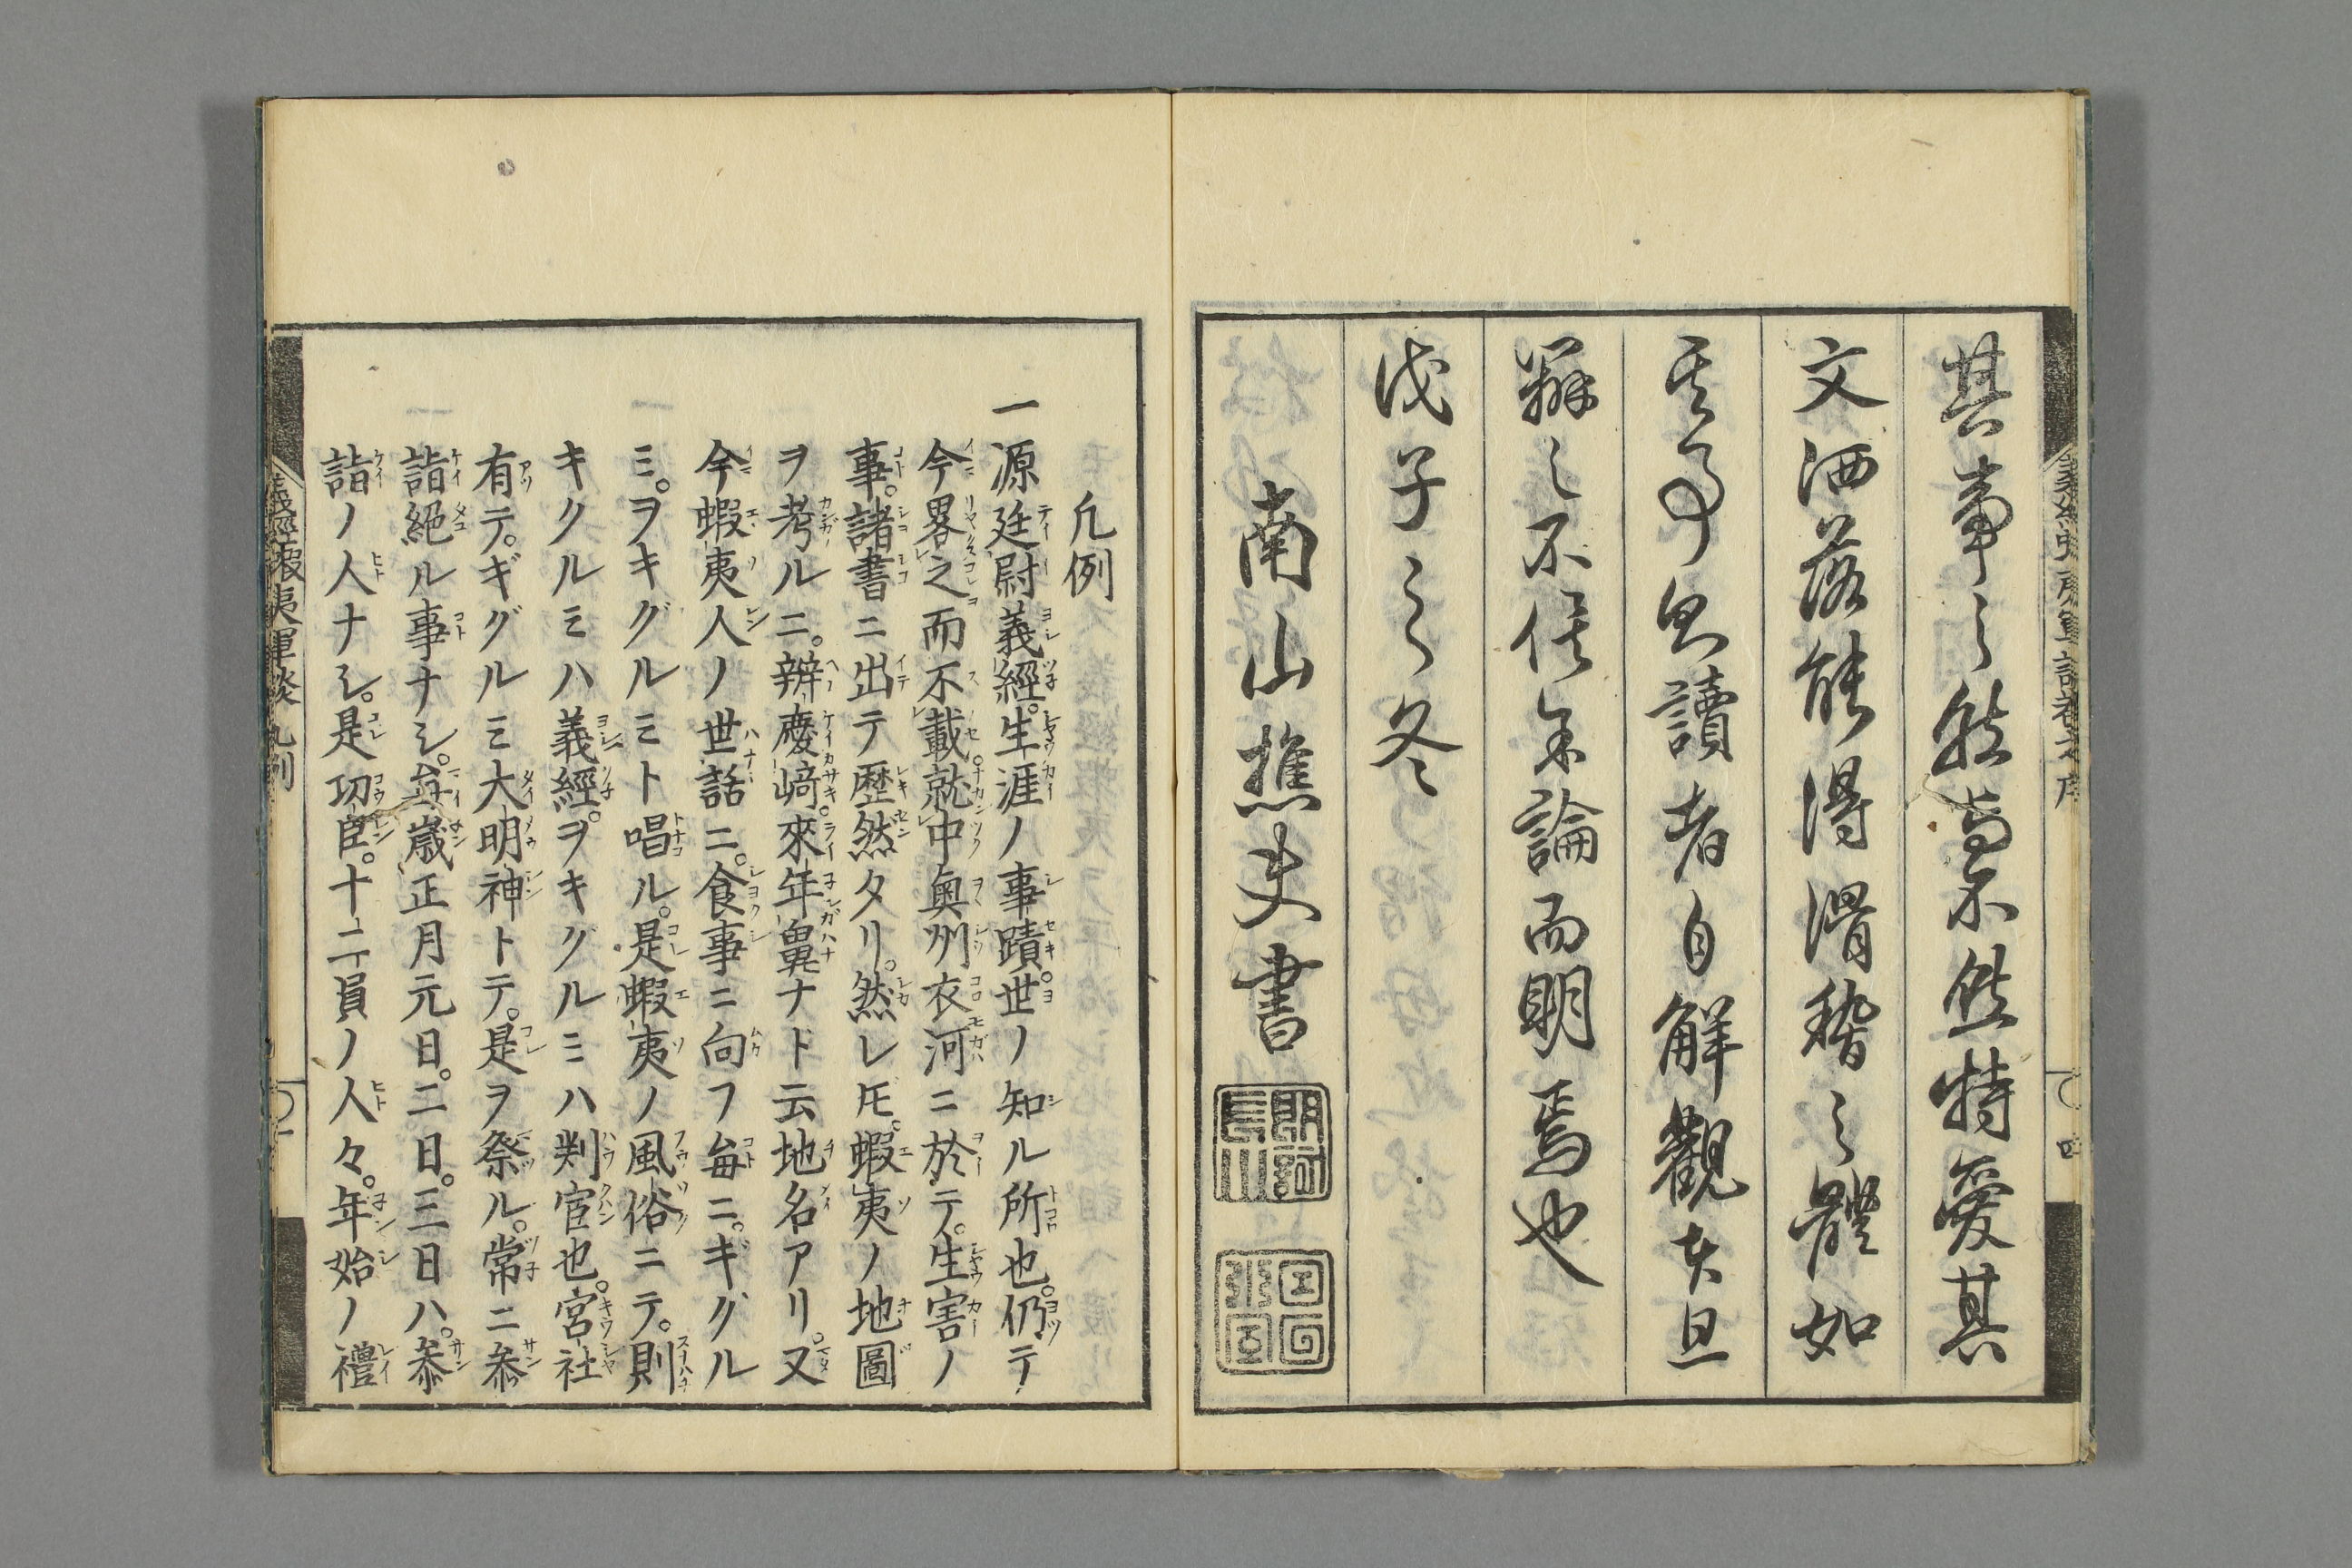 其事之然與不然特愛其
文洒落能得滑稽之體如
其事、則讀者自解觀者且
辨之不俟余論而明焉也
戊子之冬
南山樵夫書
凡例
一源廷尉義經。生涯ノ事蹟。世ノ知ル所也。仍テ
今畧之而不載就中奥州衣河ニ於テ。生害ノ
事。諸書ニ出テ歴然タリ。然レ𪜈。蝦夷ノ地圖
ヲ考ルニ。辨慶﨑。來年鼻ナド云地名アリ。又
今蝦夷人ノ世話ニ。食事ニ向フ毎ニ。ギグル
ミ。ヲキグルミト唱ル。是蝦夷ノ風俗ニテ。則
キクルミハ義經。ヲキグルミハ判官也。宮社
有テ。ギグルミ大明神トテ。是ヲ祭ル。常ニ叅
詣絕ル事ナシ。毎歳正月元日。二日。三日ハ。叅
詣ノ人ナシ。是功臣。十二員ノ人々。年始ノ禮
義經蝦夷軍談 凡例